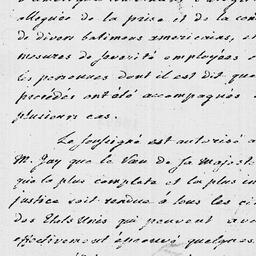 alleguées de la prise et de la con
de divers batimens americains, et
mesures de severité employées e
les personnes dont il est dit que
procédés ont été accompagnés
plusieurs cas.
Le Soussigné est autorisé a
M. Jay que le Vœu de Sa Majest
que la plus complete et la plus im
justice soit rendue à tous les cit
des Etats Unis qui peuvent av
effectivement éprouvé quelques